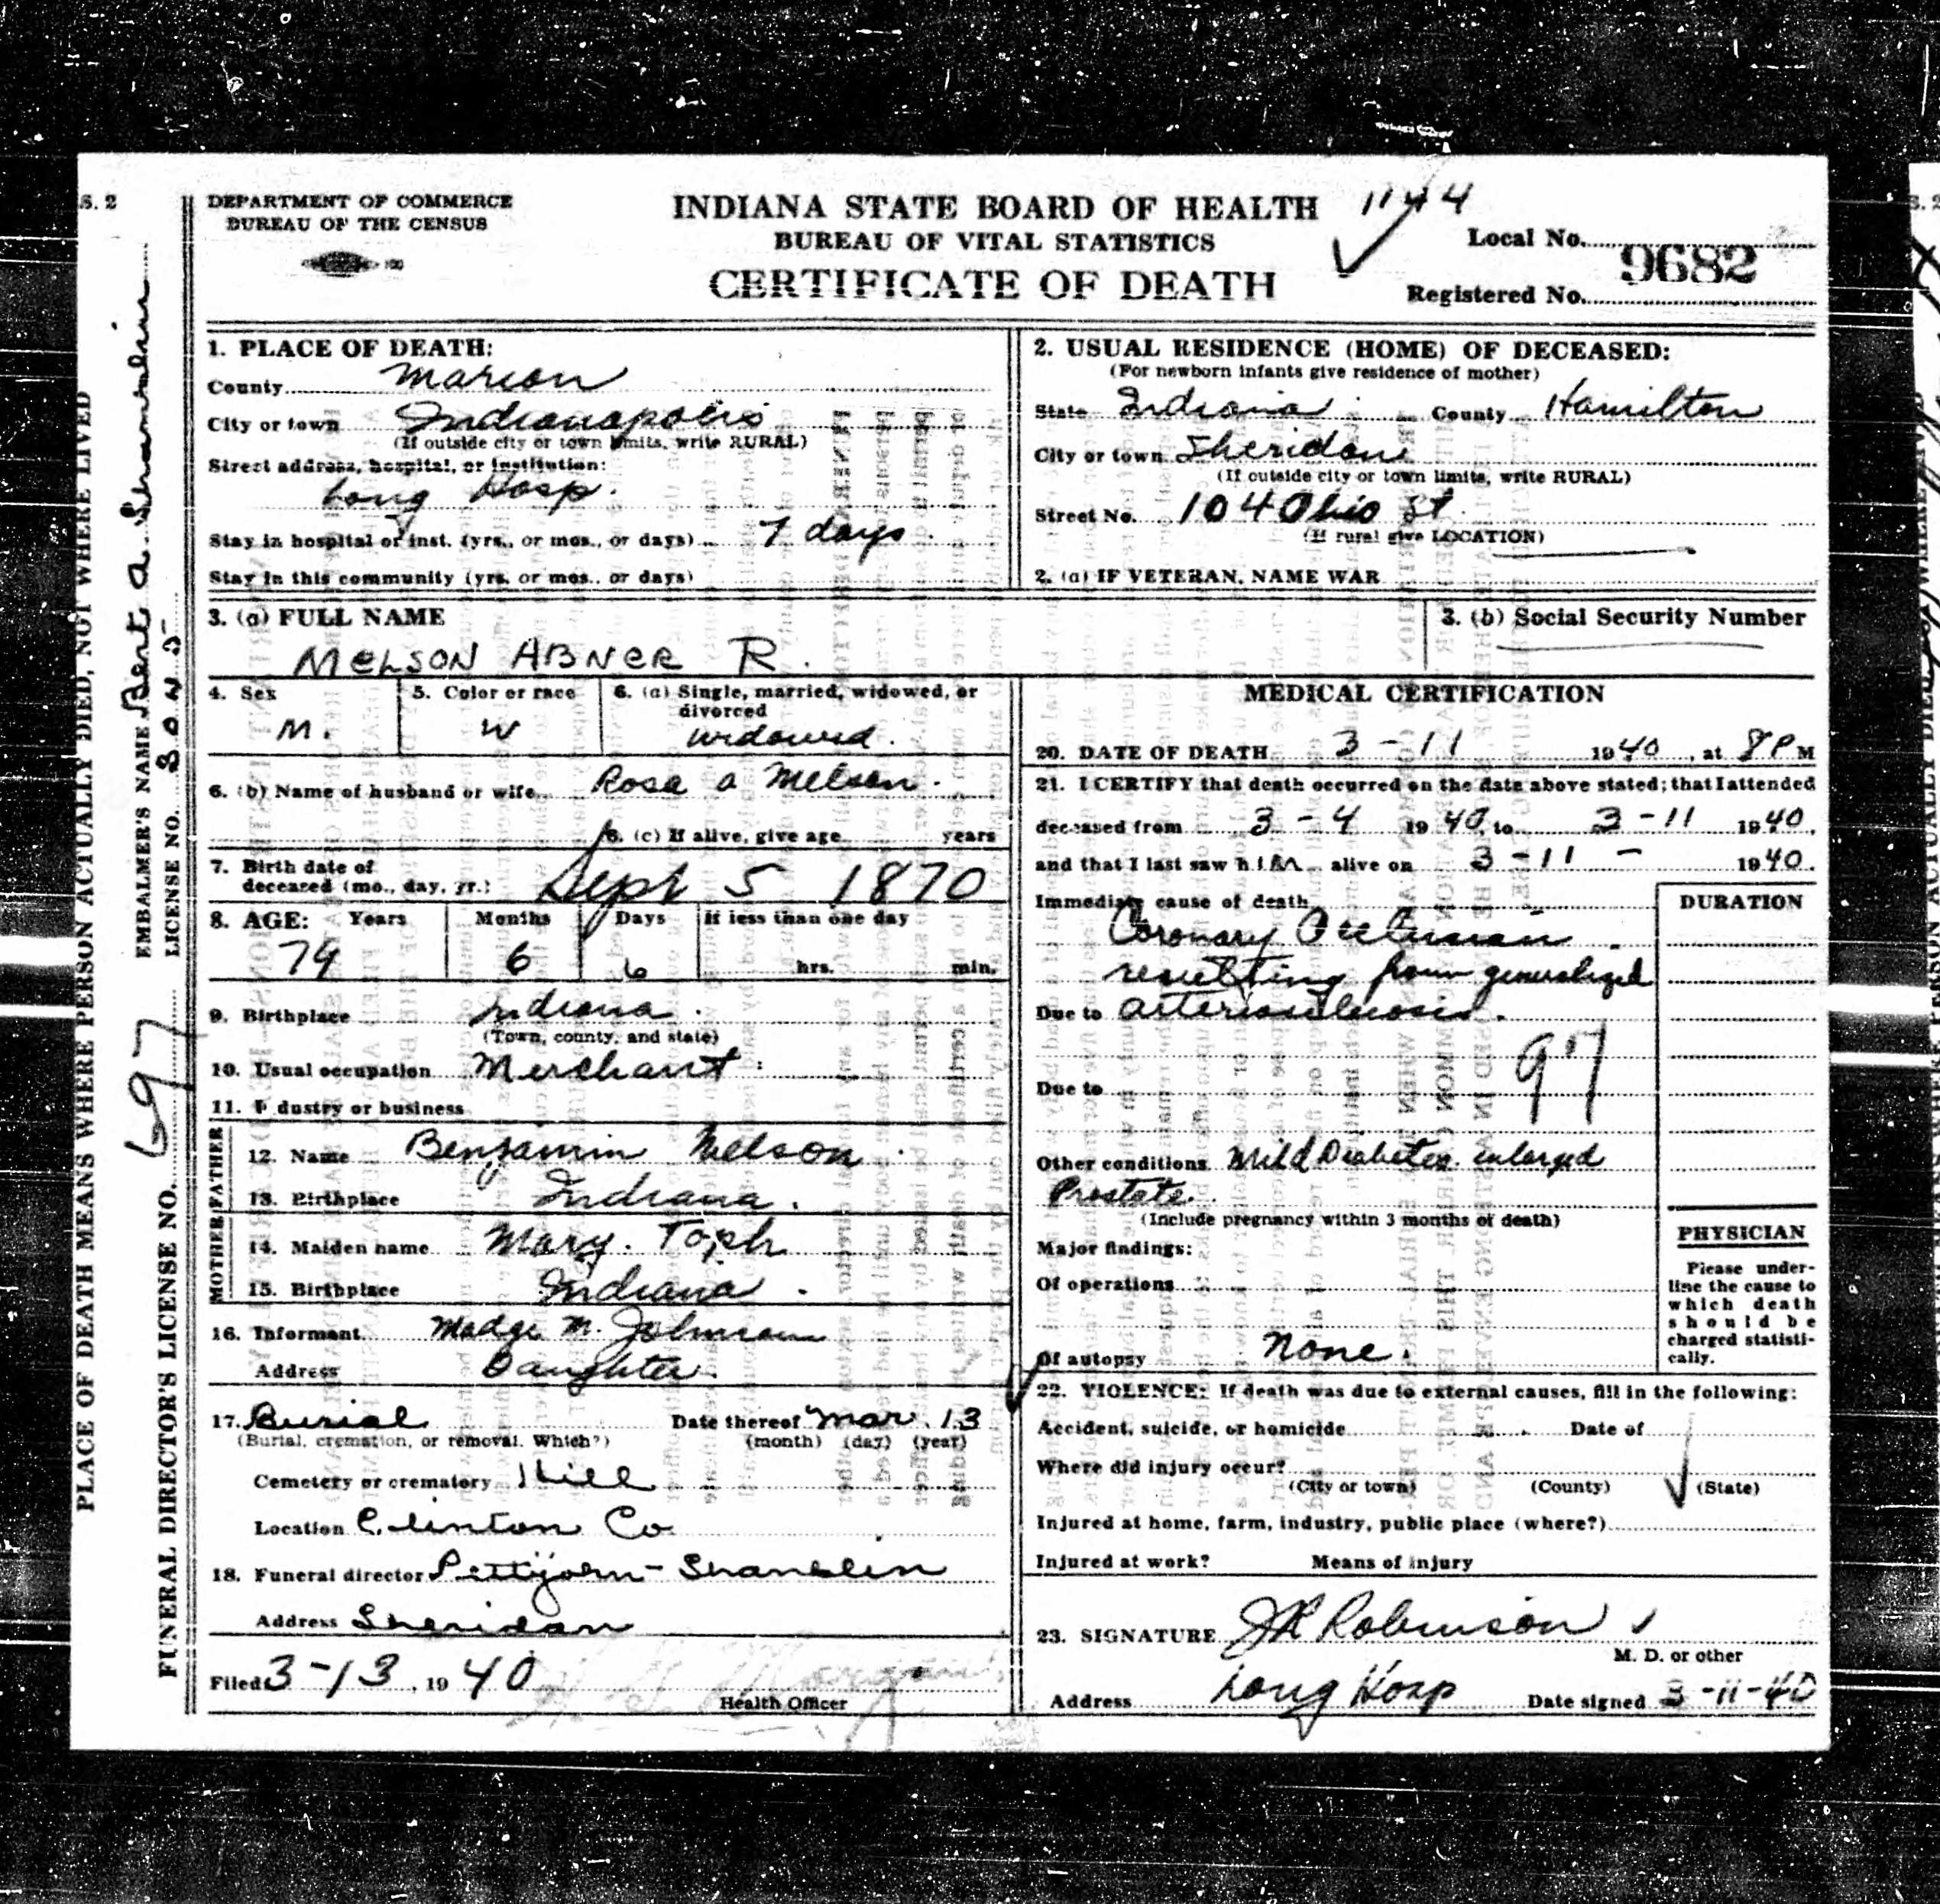 S. 2
DEPARTMENT OF COMMERCE
BUREAU OF THE CENSUS
INDIANA STATE BOARD OF HEALTH
BUREAU OF VITAL STATISTICS
CERTIFICATE OF DEATH
1144
Local No.
Registered No. 9682
PLACE OF DEATH MEANS WHERE PERSON ACTUALLY DIED, NOT WHERE LIVED
EMBALMER'S NAME Bert A.
LICENSE NO.
FUNERAL DIRECTOR'S LICENSE NO. 697
1. PLACE OF DEATH:
County Marion
City or town Indianapolis
(If outside city or town limits, write RURAL)
Street address, hospital, or institution:
Long Hosp.
Stay in hospital or inst. (yrs., or mos., or days) 7 days
Stay in this community (yrs. or mos., or days)
2. USUAL RESIDENCE (HOME) OF DECEASED:
(For newborn infants give residence of mother)
State Indiana County Hamilton
City or town Sheridan
(If outside city or town limits, write RURAL)
Street No. 104 Ohio St.
(If rural give LOCATION)
2. (a) IF VETERAN, NAME WAR
3. (a) FULL NAME
MELSON ABNER R.
3. (b) Social Security Number
4. Sex
M.
5. Color or race
W
6. (a) Single, married, widowed, or divorced
widowed.
6. (b) Name of husband or wife Rosa a Melson.
6. (c) If alive, give age years
7. Birth date of
deceased (mo., day, yr.) Sept 5 1870
8. AGE: Years Months Days If less than one day
79 6 6 hrs. min.
9. Birthplace Indiana.
(Town, county, and state)
10. Usual occupation Merchant
11. Industry or business
FATHER
12. Name Benjamin Melson
13. Birthplace Indiana.
MOTHER
14. Maiden name Mary. Toph
15. Birthplace Indiana.
16. Informant Madge M. Johnson
Address Daughter.
17. Burial Date thereof Mar. 13
(Burial, cremation, or removal. Which?) (month) (day) (year)
Cemetery or crematory Hill
Location Clinton Co.
18. Funeral director Pettijohn-Shamblin
Address Sheridan
Filed 3-13, 1940
Health Officer
MEDICAL CERTIFICATION
20. DATE OF DEATH 3-11 1940, at 8 P M
21. I CERTIFY that death occurred on the date above stated; that I attended
deceased from 3-4 1940, to 3-11 1940,
and that I last saw him alive on 3-11- 1940.
Immediate cause of death
Coronary Occlusion.
resulting from generalized
Due to arteriosclerosis.
97
Due to
Other conditions Mild Diabetes. enlarged
Prostate.
(Include pregnancy within 3 months of death)
Major findings:
Of operations
Of autopsy None.
DURATION
PHYSICIAN
Please under-
line the cause to
which death
should be
charged statisti-
cally.
22. VIOLENCE: If death was due to external causes, fill in the following:
Accident, suicide, or homicide Date of
Where did injury occur?
(City or town) (County) (State)
Injured at home, farm, industry, public place (where?)
Injured at work? Means of injury
23. SIGNATURE JR Robinson
M. D. or other
Address Long Hosp Date signed 3-11-40